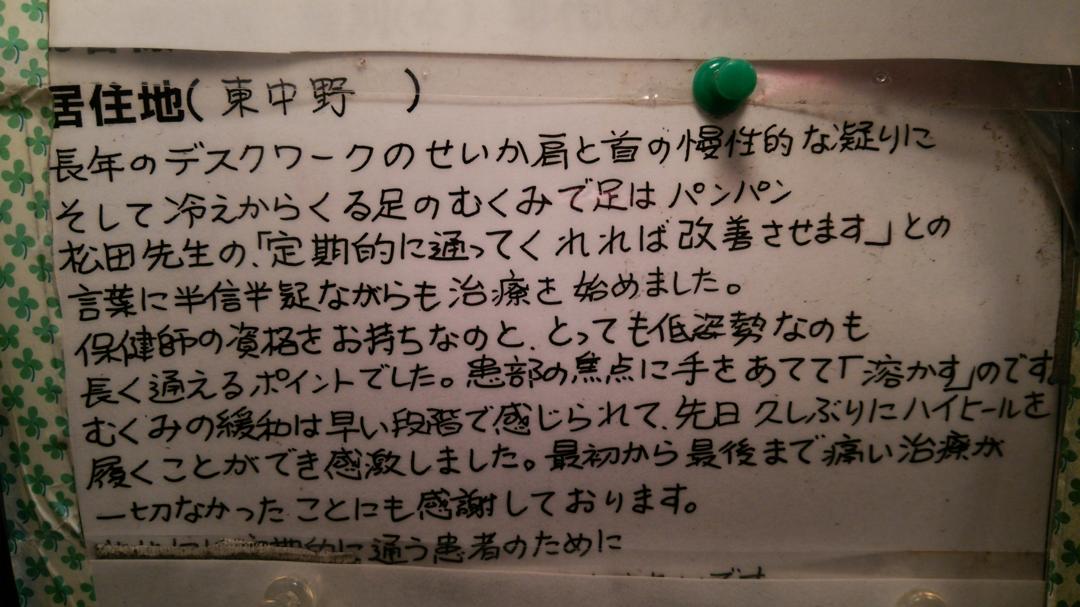 居住地(東中野　)
長年のデスクワークのせいか肩と首の慢性的な凝りに
そして冷えからくる足のむくみで足はパンパン
松田先生の、「定期的に通ってくれれば改善させます」との
言葉に半信半疑ながらも治療を始めました。
保健師の資格をお持ちなのと、とっても低姿勢なのも
長く通えるポイントでした。患部の焦点に手をあてて「溶かす」のです。
むくみの緩和は早い段階で感じられて、先日久しぶりにハイヒールを
履くことができ感激しました。最初から最後まで痛い治療が
一切なかったことにも感謝しております。
に通う患者のために
です